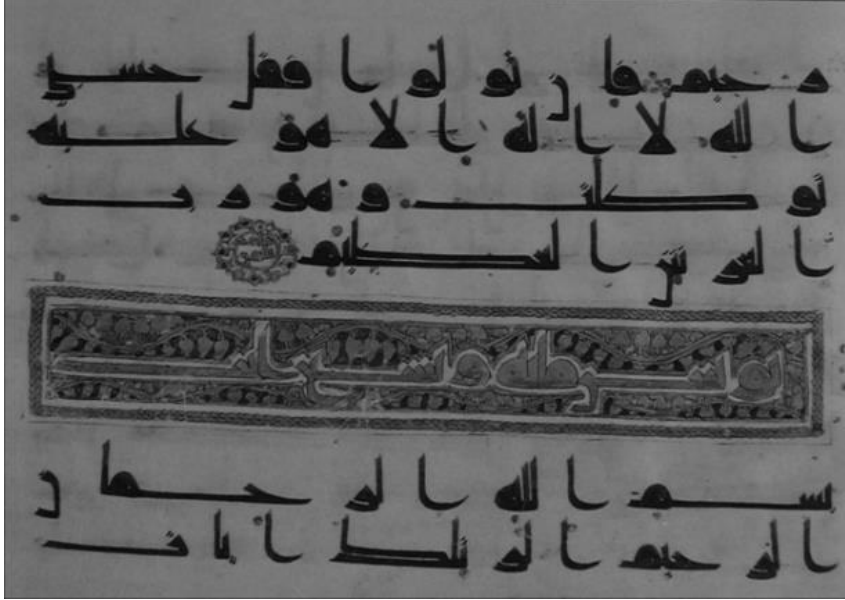 رحيم فإن تولوا فقل حسبي
الله لا إله إلا هو عليه
توكلت وهو رب
العرش العظيم
بسم الله الرحمن
الرحيم الر تلك آيات